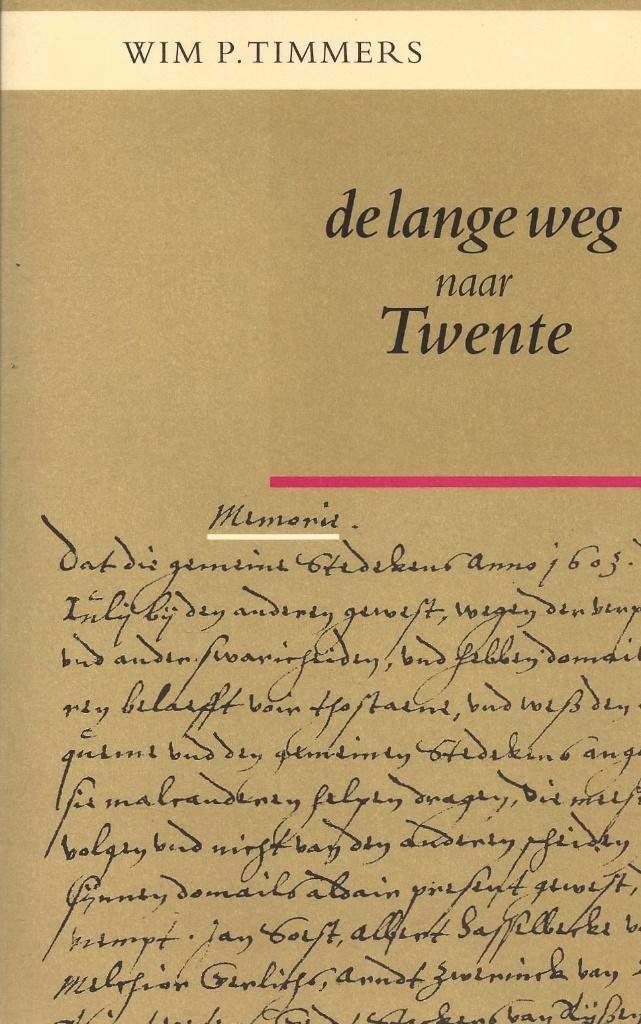 WIM P. TIMMERS
de lange weg
naar
Twente
Memorie.
Dat die gemeine Stedekens Anno 1603.
Iulij bij den anderen gewest, wegen der verp
vnd ander swaricheiden, vnd hebben domail
ren belaefft voir thostaene, vnd weß den
queme vnd den gemeinen Stedekens ange
sie malcanderen helpen dragen, die meest
volgen vnd nicht van den anderen scheiden
sÿnnen domails aldair present gewest,
nempt. Jan Soest, Albert Hasselbecke v
Melchior Gerlichs, Arndt Zwerinck van
van Rÿßen